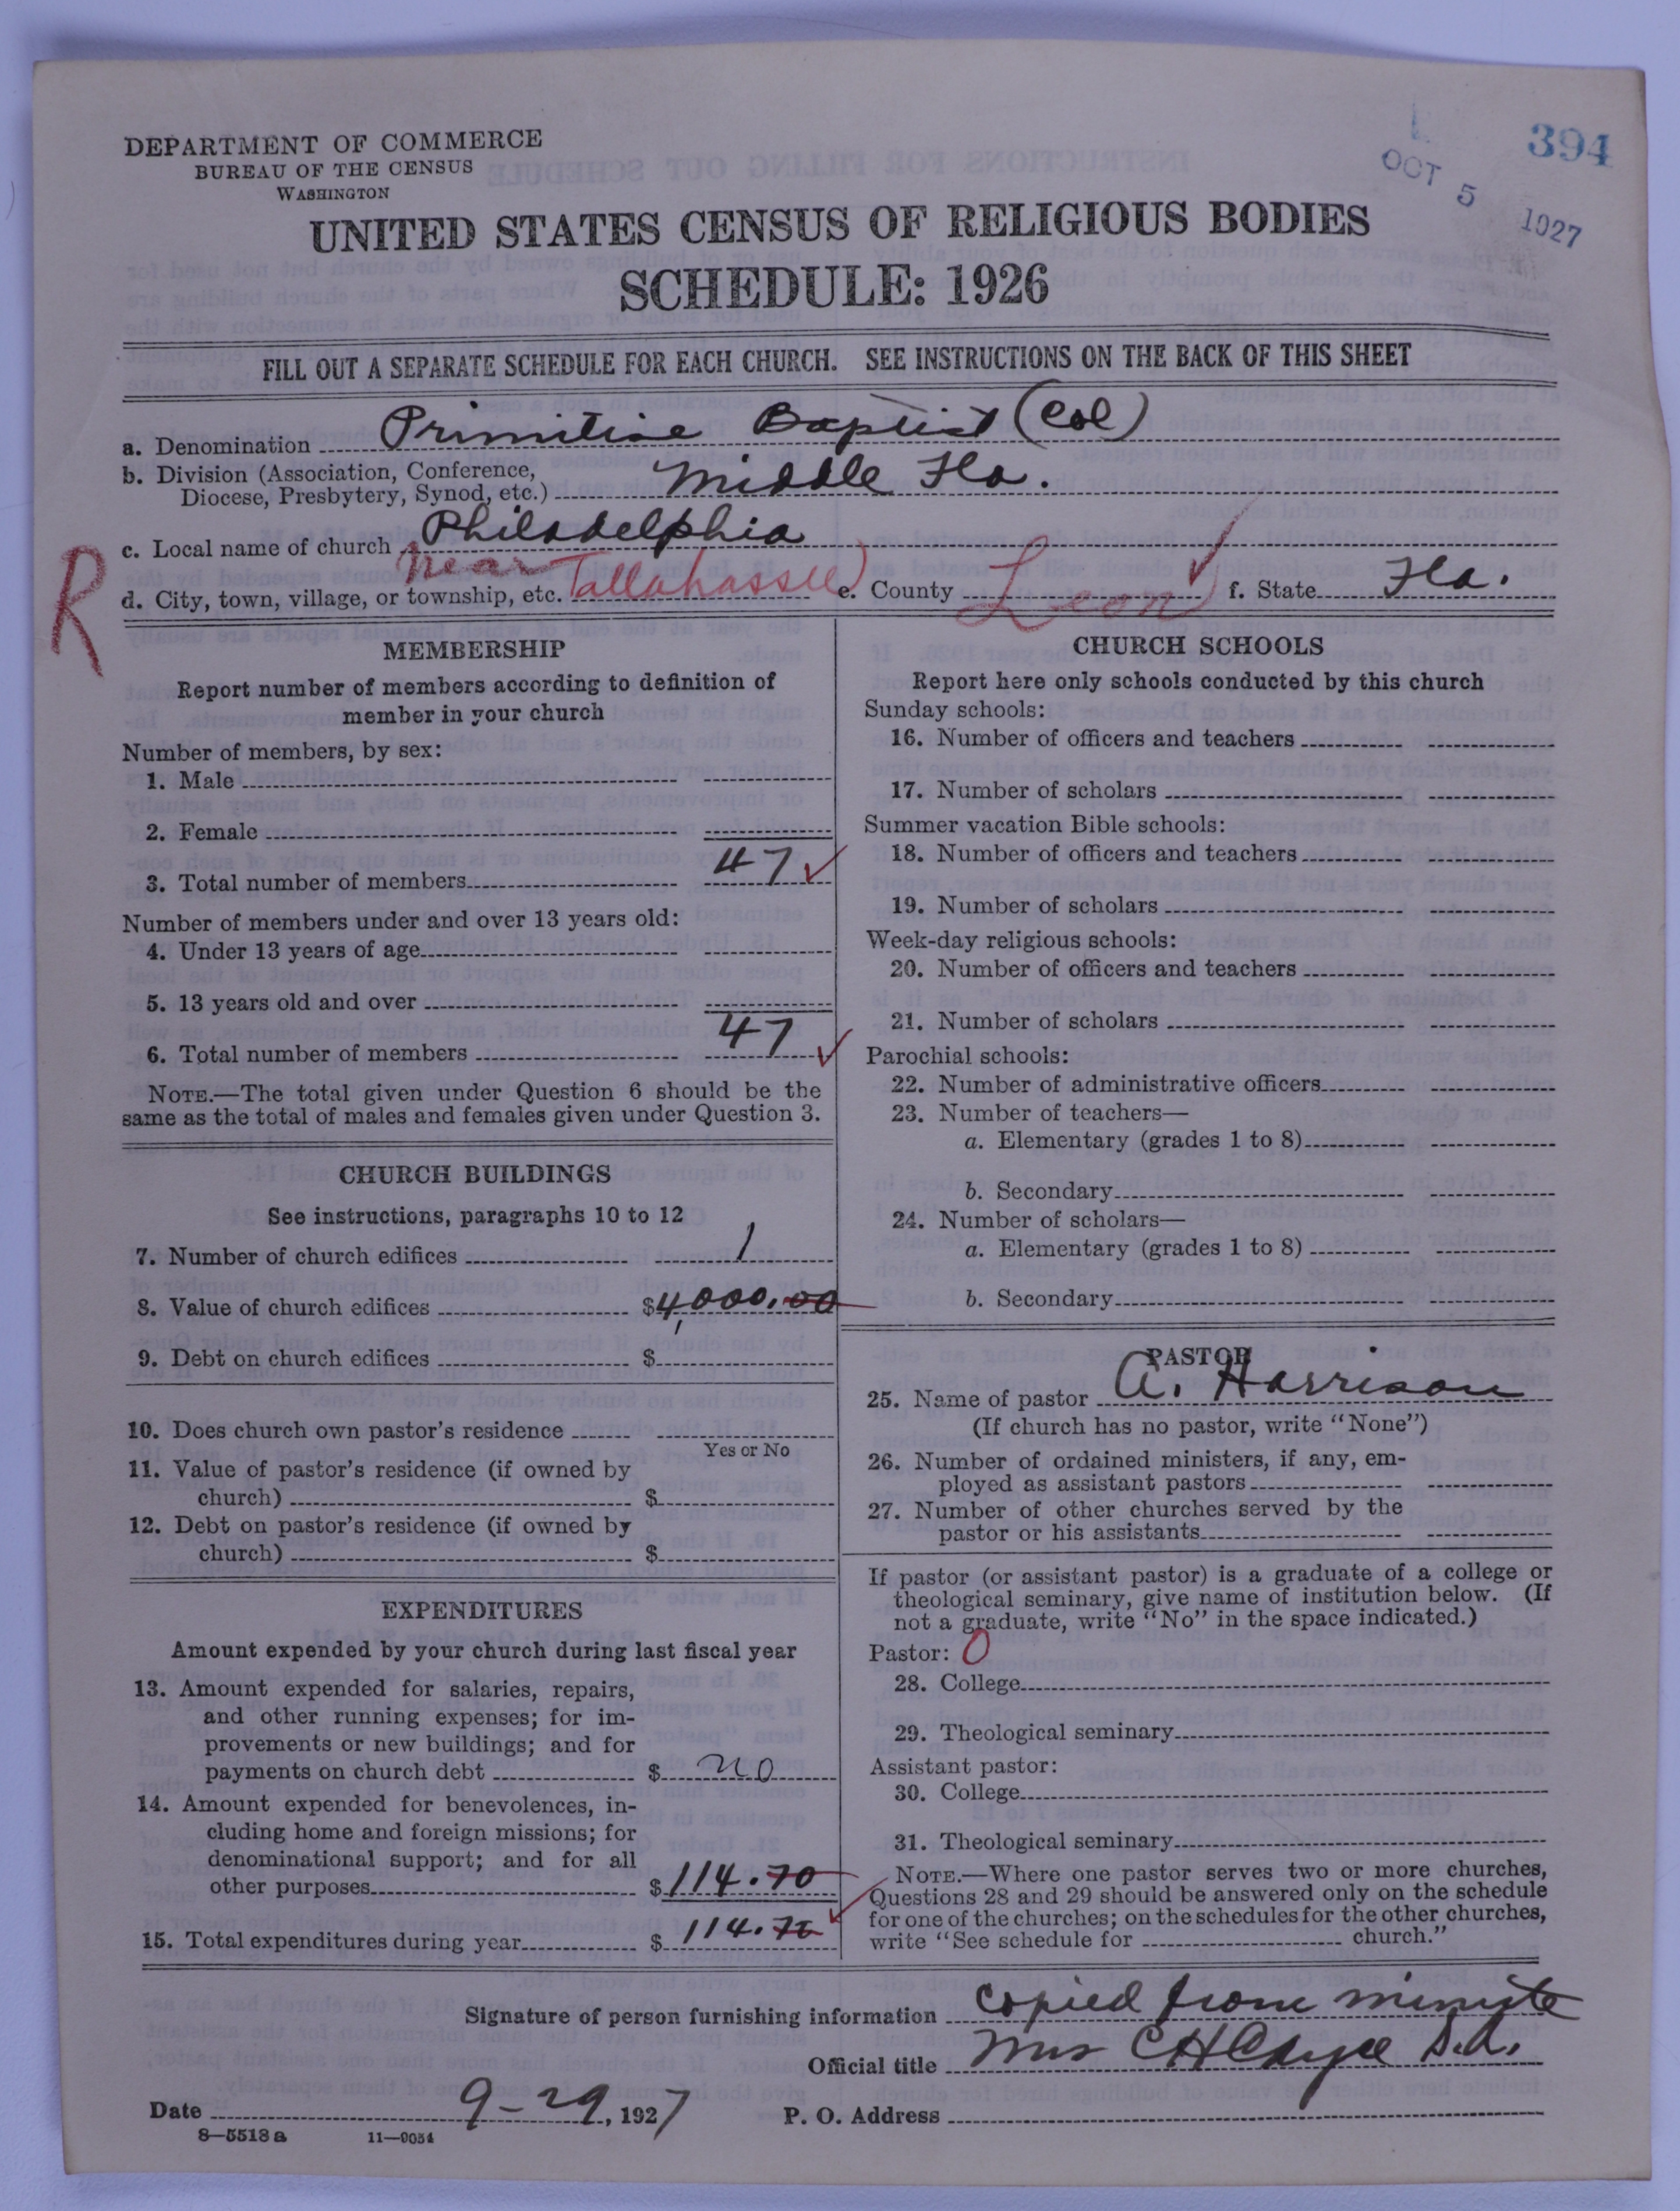 394
OCT 5 1927
DEPARTMENT OF COMMERCE
BUREAU OF THE CENSUS
WASHINGTON
UNITED STATES CENSUS OF RELIGIOUS BODIES
SCHEDULE: 1926
FILL OUT A SEPARATE SCHEDULE FOR EACH CHURCH. SEE INSTRUCTIONS ON THE BACK OF THIS SHEET
a. Denomination Primitive Baptist (Col)
b. Division (Association, Conference,
Diocese, Presbytery, Synod, etc.) Middle Fla.
c. Local name of church Philadelphia
R
d. City, town, village, or township, etc. near Tallahassee e. County Leon f. State Fla.
MEMBERSHIP
Report number of members according to definition of
member in your church
Number of members, by sex:
1. Male
2. Female
3. Total number of members 47
Number of members under and over 13 years old:
4. Under 13 years of age
5. 13 years old and over
6. Total number of members 47
NOTE.—The total given under Question 6 should be the
same as the total of males and females given under Question 3.
CHURCH BUILDINGS
See instructions, paragraphs 10 to 12
7. Number of church edifices 1
8. Value of church edifices $4,000.00
9. Debt on church edifices $
10. Does church own pastor's residence
Yes or No
11. Value of pastor's residence (if owned by
church) $
12. Debt on pastor's residence (if owned by
church) $
EXPENDITURES
Amount expended by your church during last fiscal year
13. Amount expended for salaries, repairs,
and other running expenses; for im-
provements or new buildings; and for
payments on church debt $ no
14. Amount expended for benevolences, in-
cluding home and foreign missions; for
denominational support; and for all
other purposes $114.70
15. Total expenditures during year $114.70
CHURCH SCHOOLS
Report here only schools conducted by this church
Sunday schools:
16. Number of officers and teachers
17. Number of scholars
Summer vacation Bible schools:
18. Number of officers and teachers
19. Number of scholars
Week-day religious schools:
20. Number of officers and teachers
21. Number of scholars
Parochial schools:
22. Number of administrative officers
23. Number of teachers—
a. Elementary (grades 1 to 8)
b. Secondary
24. Number of scholars—
a. Elementary (grades 1 to 8)
b. Secondary
PASTOR
25. Name of pastor A. Harrison
(If church has no pastor, write "None")
26. Number of ordained ministers, if any, em-
ployed as assistant pastors
27. Number of other churches served by the
pastor or his assistants
If pastor (or assistant pastor) is a graduate of a college or
theological seminary, give name of institution below. (If
not a graduate, write "No" in the space indicated.)
Pastor: 0
28. College
29. Theological seminary
Assistant pastor:
30. College
31. Theological seminary
NOTE.—Where one pastor serves two or more churches,
Questions 28 and 29 should be answered only on the schedule
for one of the churches; on the schedules for the other churches,
write "See schedule for church."
Signature of person furnishing information copied from minute
Official title Mrs C H Cayce S.A.
Date 9-29, 1927 P. O. Address
8—5518 a 11—9054